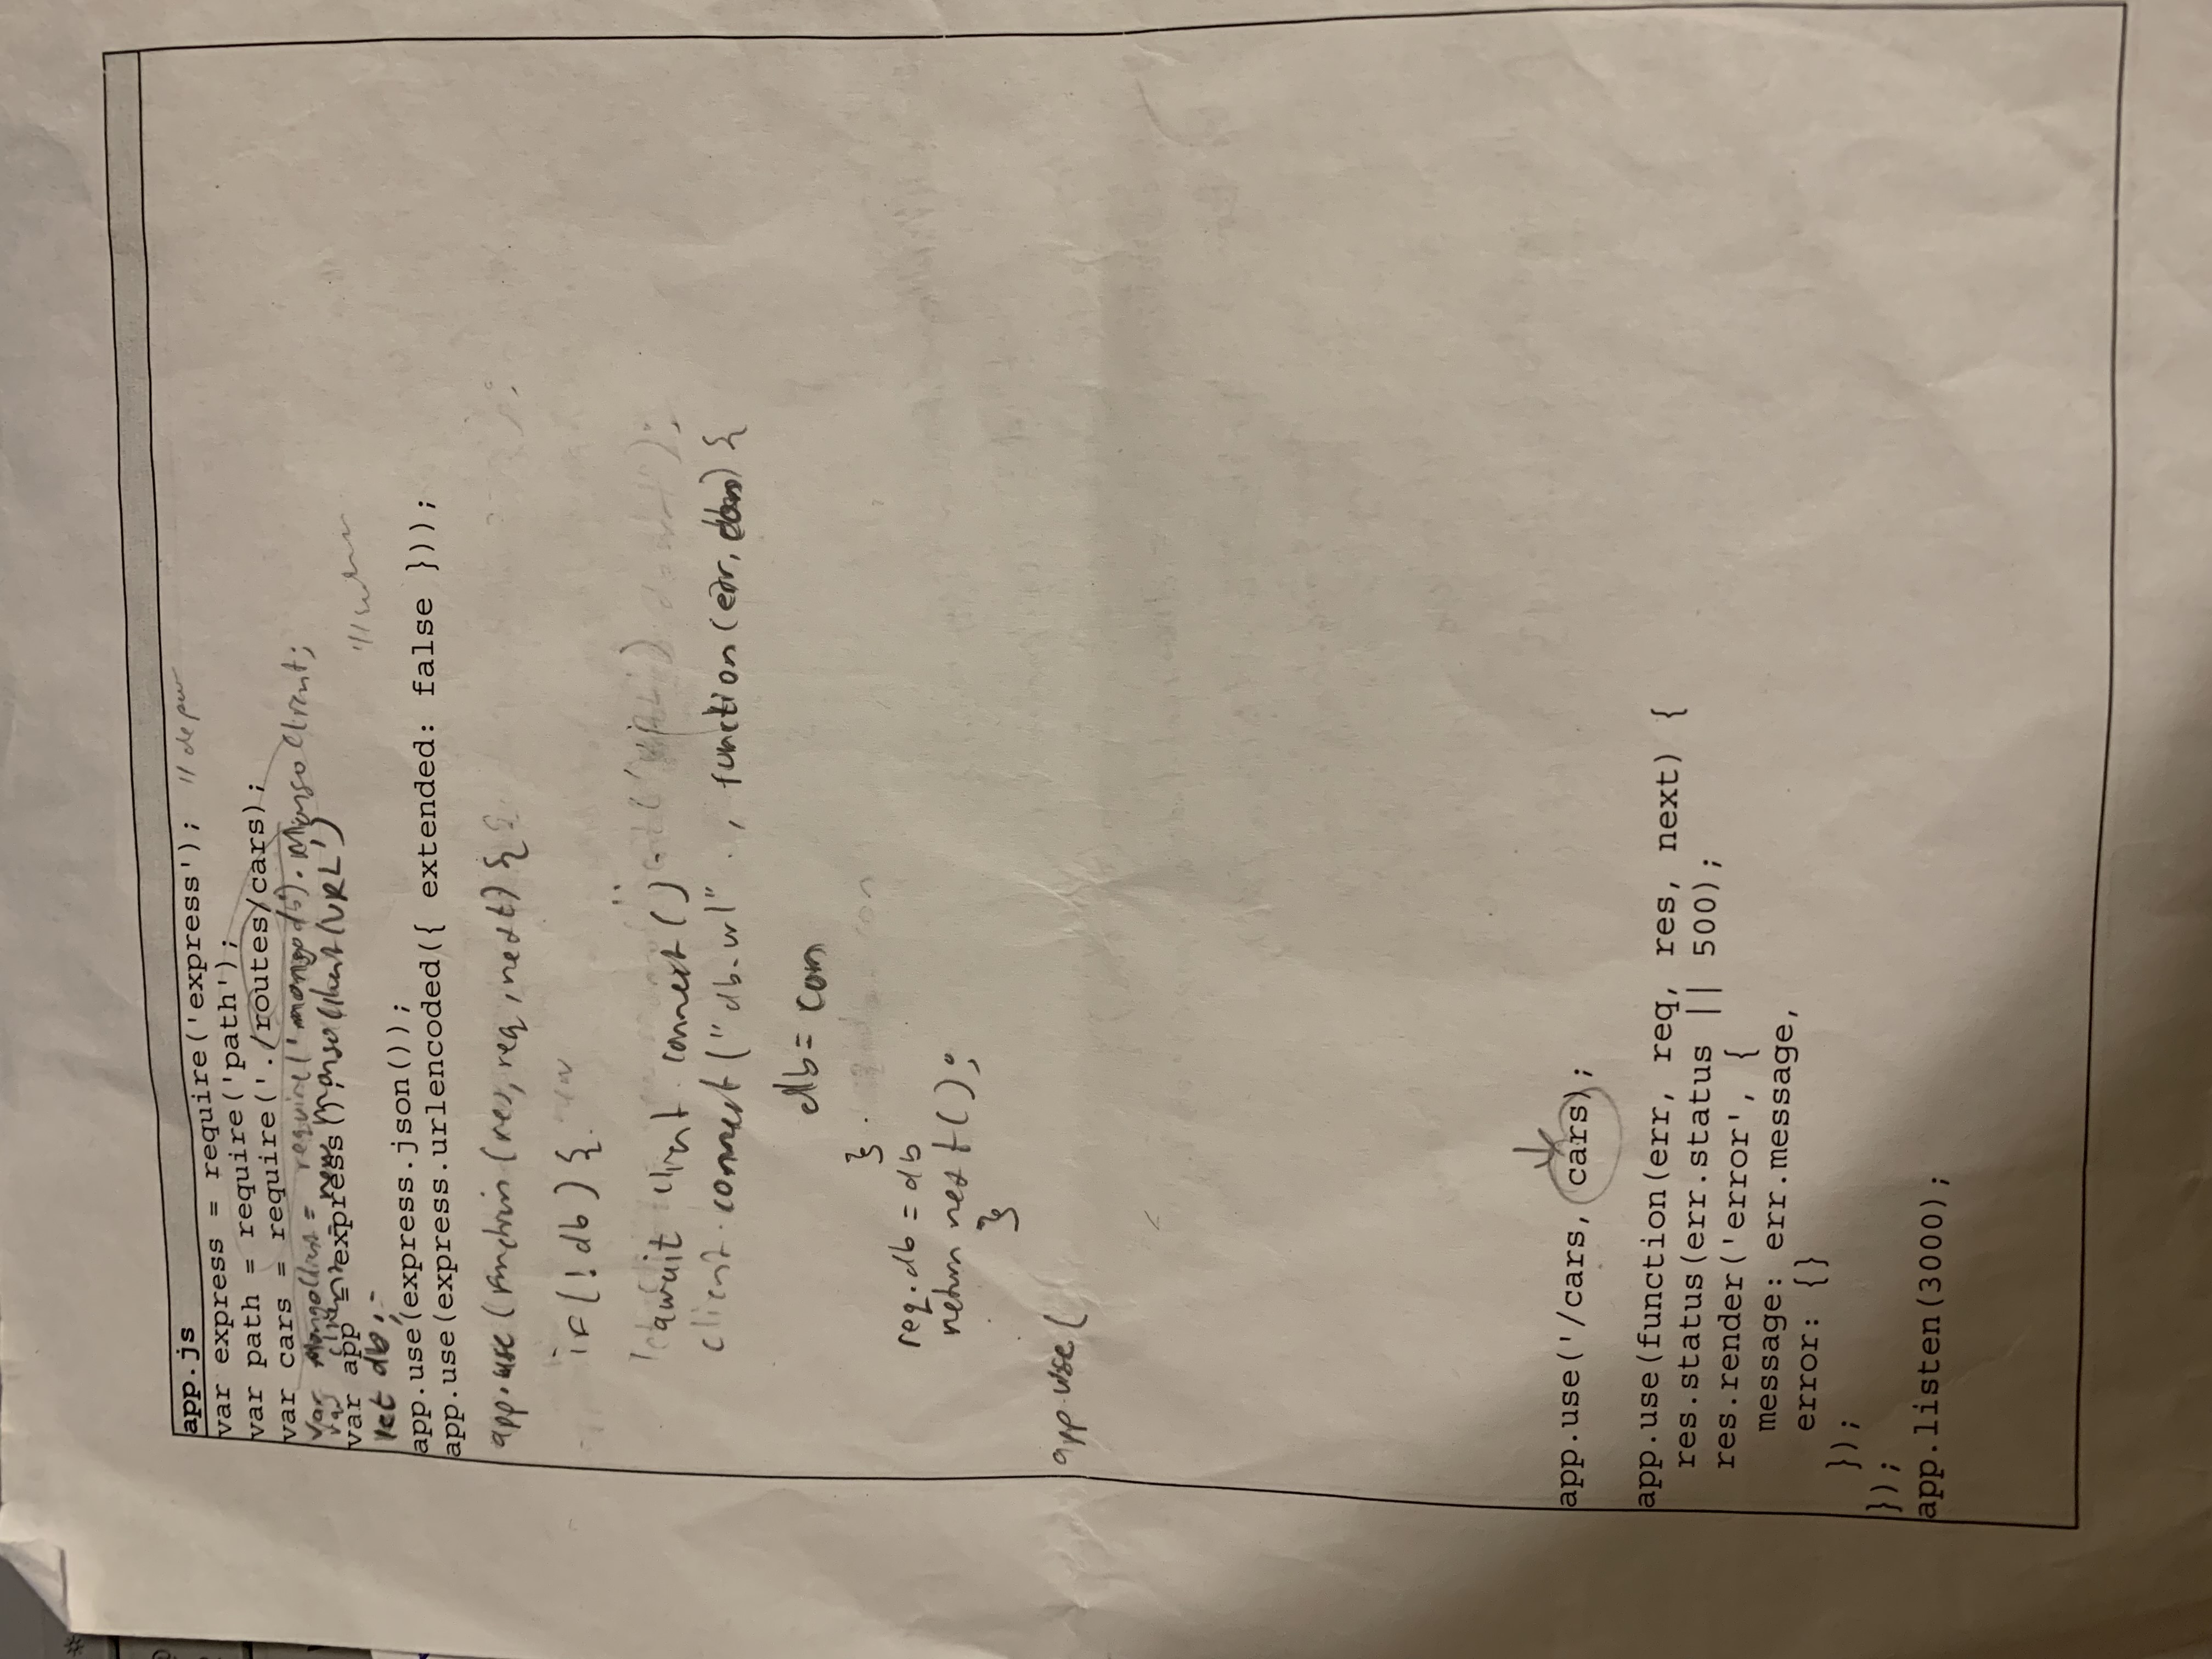 app.js
var express = require('express');
var path = require('path');
var cars = require('./routes/cars);
var MongoClient = require('mongodb').MongoClient;
var client = new MongoClient(URL')
var app = express();
let db;
app.use(express.json());
app.use(express.urlencoded({ extended: false }));
app.use(function(res, req, next) {
if(!db) {
await client connect()
client.connect("db.url" , function(err, ) {
db = con
}
req.db = db
return next();
}
app.use(
app.use('/cars, cars);
app.use(function(err, req, res, next) {
res.status(err.status || 500);
res.render('error', {
message: err.message,
error: {}
});
});
app.listen(3000);